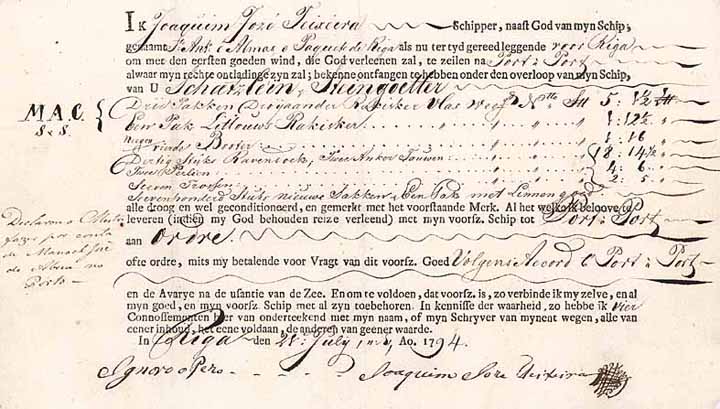 IK Joaquim Jozé Teixeira Schipper, naast God van myn Schip,
genaamt Sto. Anto. e Almas e Paquete de Riga als nu ter tyd gereed leggende voor Riga
om met den eersten goeden wind, die God verleenen zal, te zeilen na Port: a Port
alwaar myn rechte ontladinge zyn zal; bekenne ontfangen te hebben onder den overloop van myn Schip,
van U Schatzlein, Steingoetter
M.A.C.
S & S.
Drie Pakken Drayaander Rakitzer Vlas 5: 1½
Een Pak Littouws Rakitzer 1: 12½
1: 16
Dertig Stuks Ravendoek, Twee Anker Touwen 18: 14½
Twee Perlien 4: 6
Seeven Trossen 2: 5
Sevenhonderd Stuks nieuwe Sakken, Een Pak met Linnen goed
alle droog en wel geconditionneerd, en gemerkt met het voorstaande Merk. Al het welk ik beloove te
leveren (indien my God behouden reize verleend) met myn voorsz. Schip tot Port: a Port
aan Ordre
ofte ordre, mits my betalende voor Vragt van dit voorsz. Goed Volgens Accord C Port: a Port
en de Avarye na de usantie van de Zee. En om te voldoen, dat voorsz. is, zo verbinde ik my zelve, en al
myn goed, en myn voorsz. Schip met al zyn toebehoren. In kennisse der waarheid, zo hebbe ik vier
Connossementen hier van onderteekend met myn naam, of myn Schryver van mynent wegen, alle van
eener inhoud, het eene voldaan, de anderen van geener waarde.
In Riga den 21 July, Ao. 1794.
Ignoro o Pezo Joaquim Joze Teixeira
de Manoel José
Porto